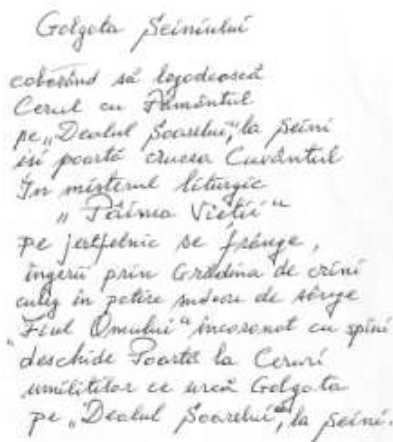 Golgota Seiniului
coborând să logodească
Cerul cu Pământul
pe „Dealul Soarelui”, la Seini
își poartă crucea Cuvântul
În misterul liturgic
„Pâinea Vieții”
Pe jertfelnic se frânge,
îngerii prin Grădina de crini
culeg în potire măcese de sânge
„Fiul Omului” încoronat cu spini
deschide Poarta la Ceruri
umililor ce urcă Golgota
pe „Dealul Soarelui”, la Seini.